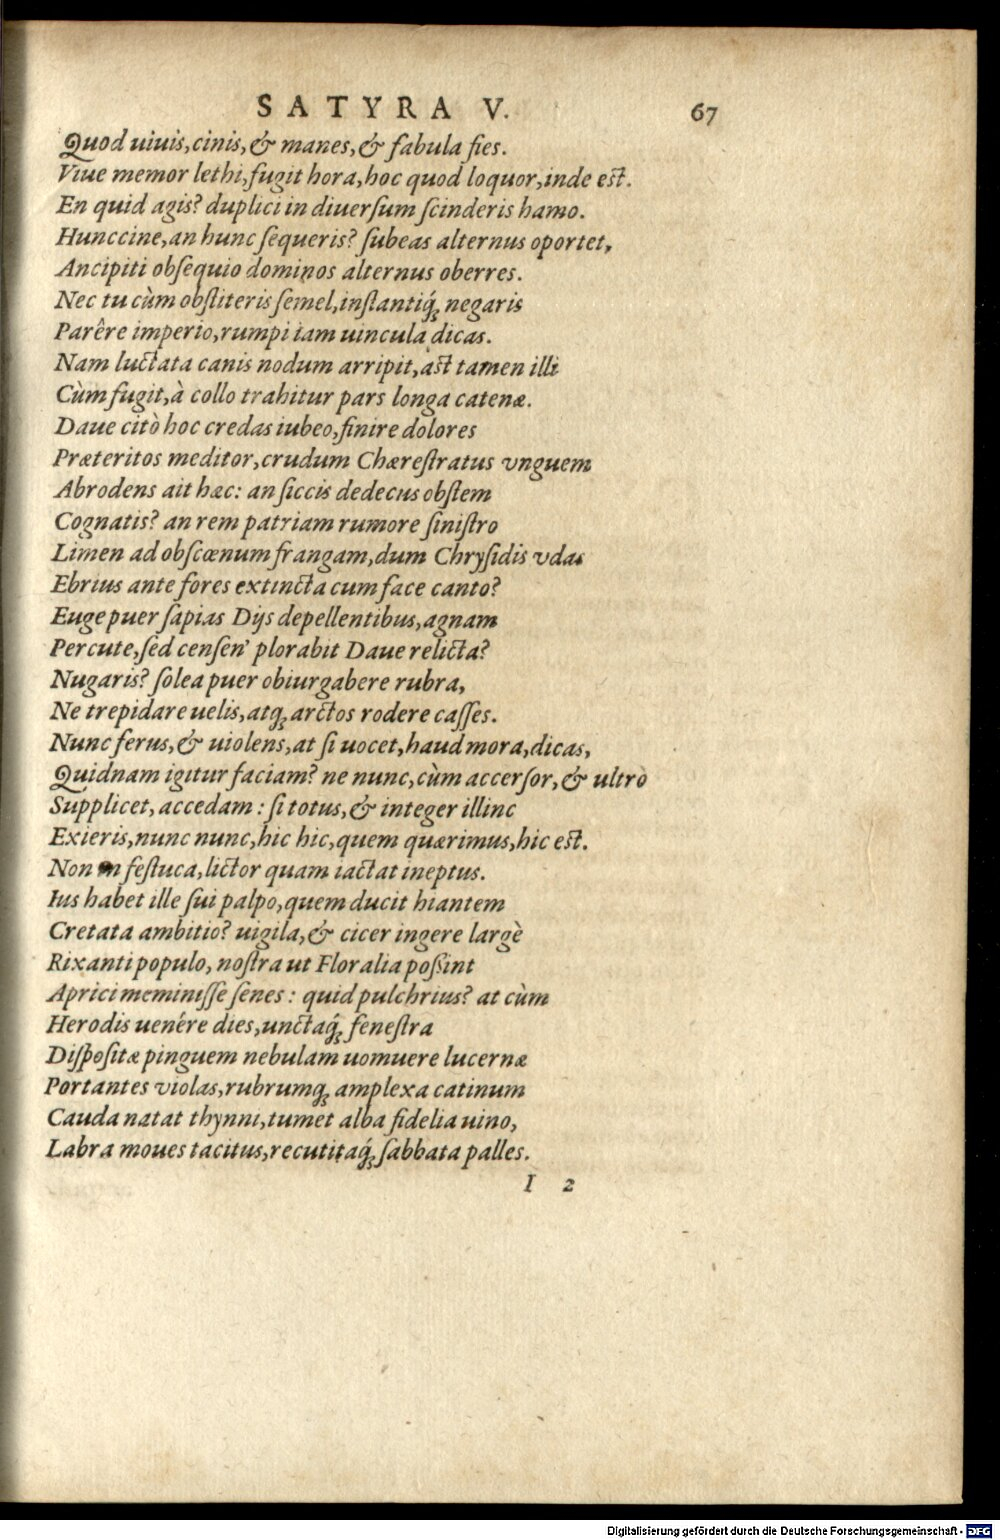 SATYRA V. 67
Quod uiuis, cinis, & manes, & fabula fies.
Viue memor lethi, fugit hora, hoc quod loquor, inde est.
En quid agis? duplici in diuersum scinderis hamo.
Hunccine, an hunc sequeris? subeas alternus oportet,
Ancipiti obsequio dominos alternus oberres.
Nec tu cùm obstiteris semel, instantiq́; negaris
Parêre imperio, rumpi iam uincula dicas.
Nam luctata canis nodum arripit, ast tamen illi
Cùm fugit, à collo trahitur pars longa catenæ.
Daue citò hoc credas iubeo, finire dolores
Præteritos meditor, crudum Chærestratus vnguem
Abrodens ait hæc: an siccis dedecus obstem
Cognatis? an rem patriam rumore sinistro
Limen ad obscœnum frangam, dum Chrysidis vdas
Ebrius ante fores extincta cum face canto?
Euge puer sapias Dijs depellentibus, agnam
Percute, sed censen' plorabit Daue relicta?
Nugaris? solea puer obiurgabere rubra,
Ne trepidare uelis, atq; arctos rodere casses.
Nunc ferus, & uiolens, at si uocet, haud mora, dicas,
Quidnam igitur faciam? ne nunc, cùm accersor, & ultrò
Supplicet, accedam: si totus, & integer illinc
Exieris, nunc nunc, hic hic, quem quærimus, hic est.
Non in festuca, lictor quam iactat ineptus.
Ius habet ille sui palpo, quem ducit hiantem
Cretata ambitio? uigila, & cicer ingere largè
Rixanti populo, nostra ut Floralia poßint
Aprici meminisse senes: quid pulchrius? at cùm
Herodis uenére dies, unctaq́; fenestra
Dispositæ pinguem nebulam uomuere lucernæ
Portantes violas, rubrumq; amplexa catinum
Cauda natat thynni, tumet alba fidelia uino,
Labra moues tacitus, recutitaq́; sabbata palles.
I 2
Digitalisierung gefördert durch die Deutsche Forschungsgemeinschaft - DFG